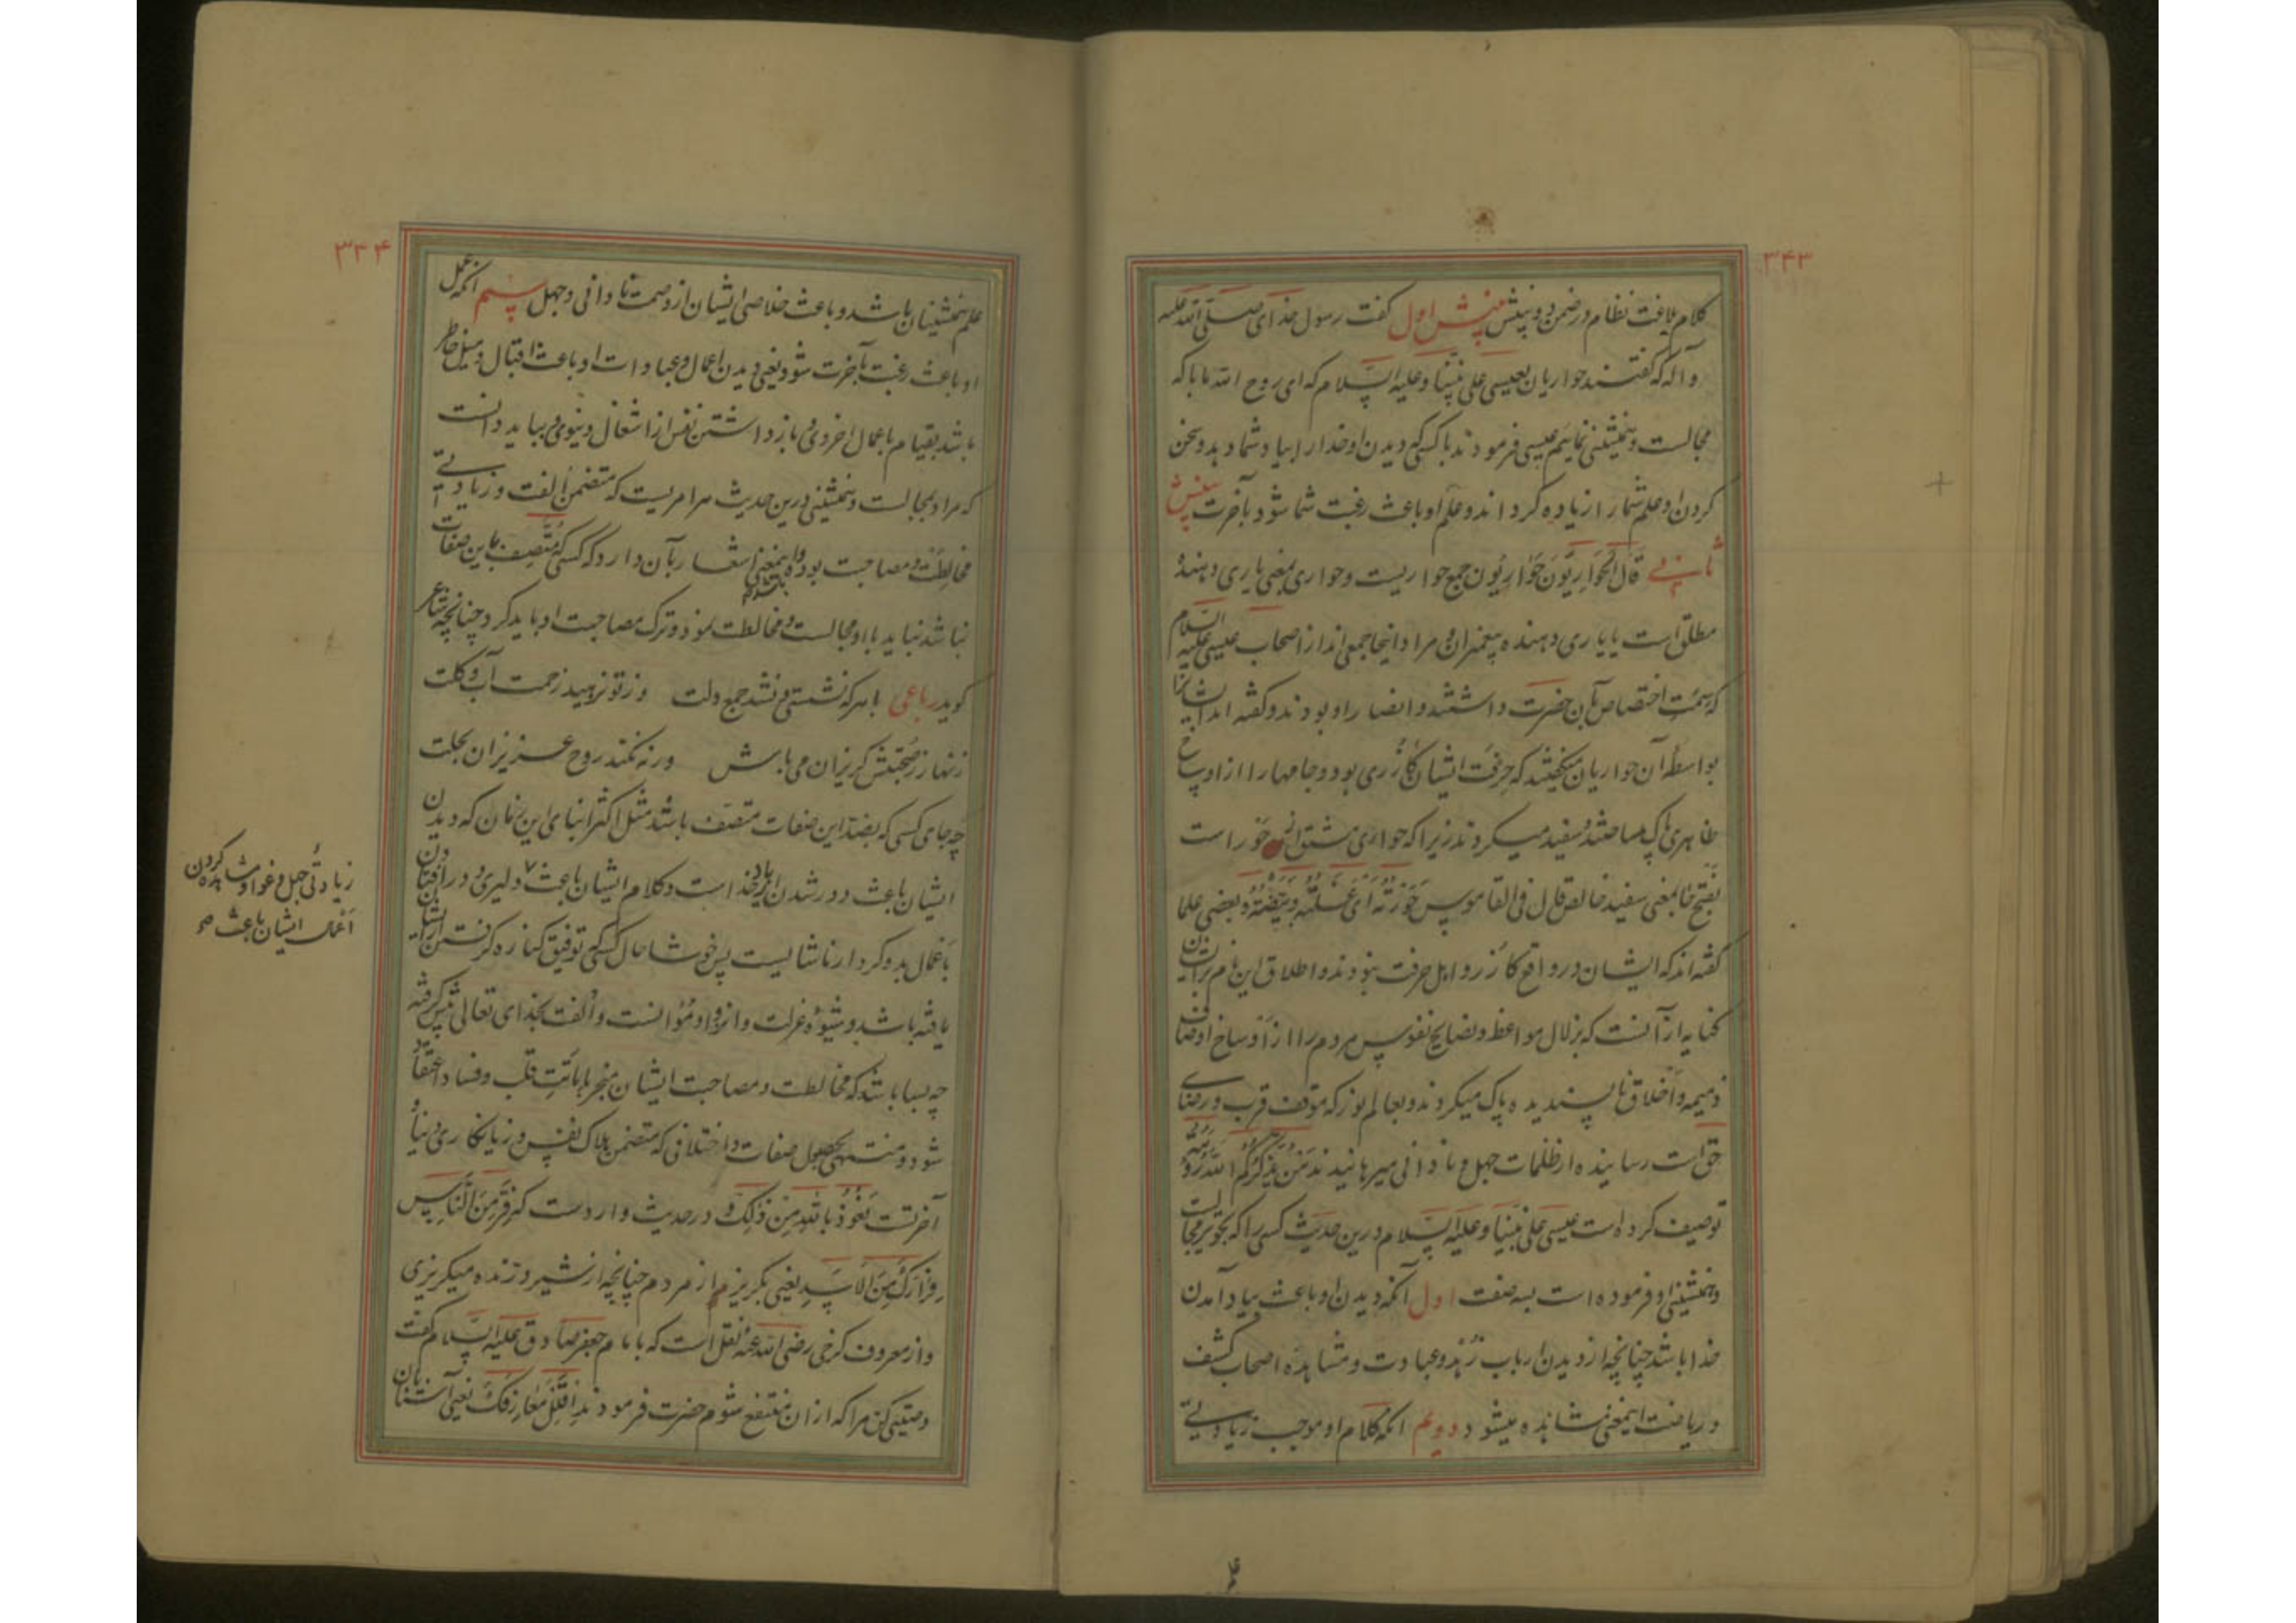 ۳۴۳
کلام بلاغت نظام در ضمن دو بینش بینش اول گفت رسول خدای صلی الله علیه
و آله که گفتند حواریان بعیسی علی نبینا و علیه السلام که ای روح الله با که
مجالست و همنشینی نمائیم عیسی فرمودند با کسی که دیدن او خدا را بیاد شما دهد و سخن
کردن او علم شما را زیاده گرداند و عمل او باعث رغبت شما شود بآخرت بینش
ثانی قال الحَوَارِیّونَ حَوَارِیّون جمع حواریست و حواری بمعنی یاری دهندهٔ
مطلق است یا یاری دهنده پیغمبران و مراد اینجا جمعی اند از اصحاب عیسی علیه السلام
که سمت اختصاص بآن حضرت داشتند و انصار او بودند و گفته اند ایشانرا
بواسطهٔ آن حواریان میگفتند که حرفت ایشان گازری بود و جامها را از اوساخ
ظاهری پاک میساختند و سفید میکردند زیرا که حواری مشتق از حَوَر است
بفتح حا بمعنی سفید خالص قال فی القاموس حَوَّرَتْه اَی غَسَلَتْه وبَیَّضَتْه و بعضی علما
گفته اند که ایشان در واقع گازر و اهل حرفت نبودند و اطلاق این نام بر ایشان
کنایه از آنست که بزلال مواعظ و نصایح نفوس مردم را از اوساخ اوصاف
ذمیمه و اخلاق ناپسندیده پاک میکردند و بعالم نور که موقف قرب و رضای
حق است رسانیده از ظلمات جهل و نادانی میرهانیدند مَنْ یُذَکِّرُکُم اللهَ رُؤیَتُه
توصیف کرده است عیسی علی نبینا و علیه السلام درین حدیث کسی را که تجویز مجالست
و همنشینی او فرموده است بسه صفت اول آنکه دیدن او باعث بیاد آمدن
خدا باشد چنانچه از دیدن ارباب زهد و عبادت و مشاهدهٔ اصحاب کشف
و ریاضت اینمعنی مشاهده میشود دویم آنکه کلام او موجب زیادتی
۳۴۴
علم همنشینان باشد و باعث خلاصی ایشان از وصمت نادانی و جهل سیم آنکه عمل
او باعث رغبت بآخرت شود یعنی دیدن اعمال و عبادات او باعث اقبال و میل خاطر
باشد بقیام باعمال اخروی و بازداشتن نفس از اشغال دنیوی و بباید دانست
که مراد بمجالست و همنشینی درین حدیث هر امریست که متضمن الفت و زیادتی
مخالطت و مصاحبت بوده باشد و اینمعنی اشعار بآن دارد که کسی که متصف باین صفات
نباشد نباید با او مجالست و مخالطت نمود و ترک مصاحبت او باید کرد چنانچه شاعر
گوید رباعی با هر که نشستی و نشد جمع دلت وز تو نرهید زحمت آب و گلت
زنهار ز صحبتش گریزان می باش ورنه نکند روح عزیزان بحلت
چه جای کسی که بضد این صفات متصف باشد مثل اکثر ابنای این زمان که دیدن
ایشان باعث دور شدن از یاد خدا است و کلام ایشان باعث و دلیری در افتادن
باعمال بد و کردار ناشایست پس خوشا حال کسی که توفیق کناره گرفتن از ایشان
یافته باشد و شیوهٔ عزلت و انزوا و مؤانست و الفت بخدای تعالی پیش گرفته
چه بسا باشد که مخالطت و مصاحبت ایشان منجر باماتت قلب و فساد اعتقاد
شود و منتهی بحصول صفات و اخلاقی که متضمن هلاک نفس و زیانکاری دنیا و
آخرتست نَعُوذُ باللهِ مِن ذٰلِکَ و در حدیث وارد ست که فِرَّ مِنَ النّاسِ
فِرَارَکَ مِنَ الاَسَدِ یعنی بگریز از مردم چنانچه از شیر درنده میگریزی
و از معروف کرخی رضی الله عنه نقل است که بامام جعفر صادق علیه السلام گفت
وصیتی کن مرا که از آن منتفع شوم حضرت فرمودند اَقْلِل مَعَارِفَکَ یعنی آشنایان
زیادتی جهل و غوا و مشاهده کردن
اعمال ایشان باعث صح